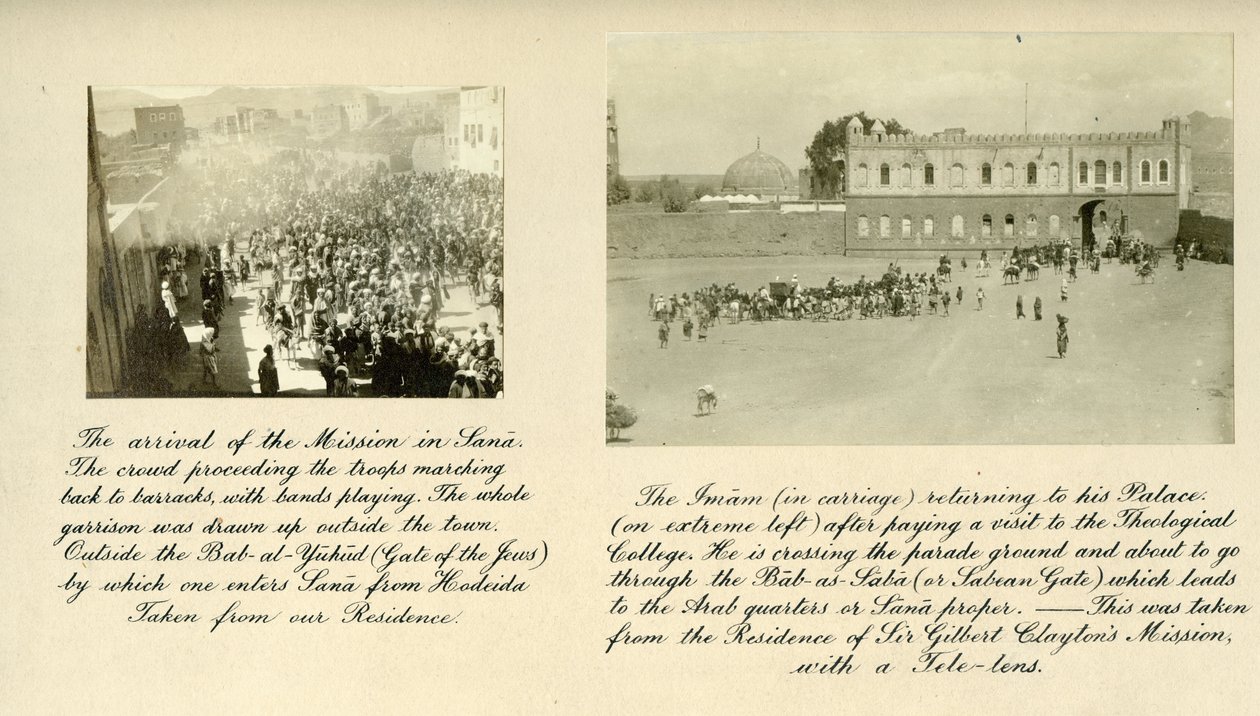 The arrival of the Mission in Sanā.
The crowd proceeding the troops marching
back to barracks, with bands playing. The whole
garrison was drawn up outside the town.
Outside the Bab-al-Yūhūd (Gate of the Jews)
by which one enters Sanā from Hodeida
Taken from our Residence.
The Imām (in carriage) returning to his Palace.
(on extreme left) after paying a visit to the Theological
College. He is crossing the parade ground and about to go
through the Bāb-as-Sābā (or Sabean Gate) which leads
to the Arab quarters or Sānā proper. — This was taken
from the Residence of Sir Gilbert Clayton's Mission,
with a Tele-lens.